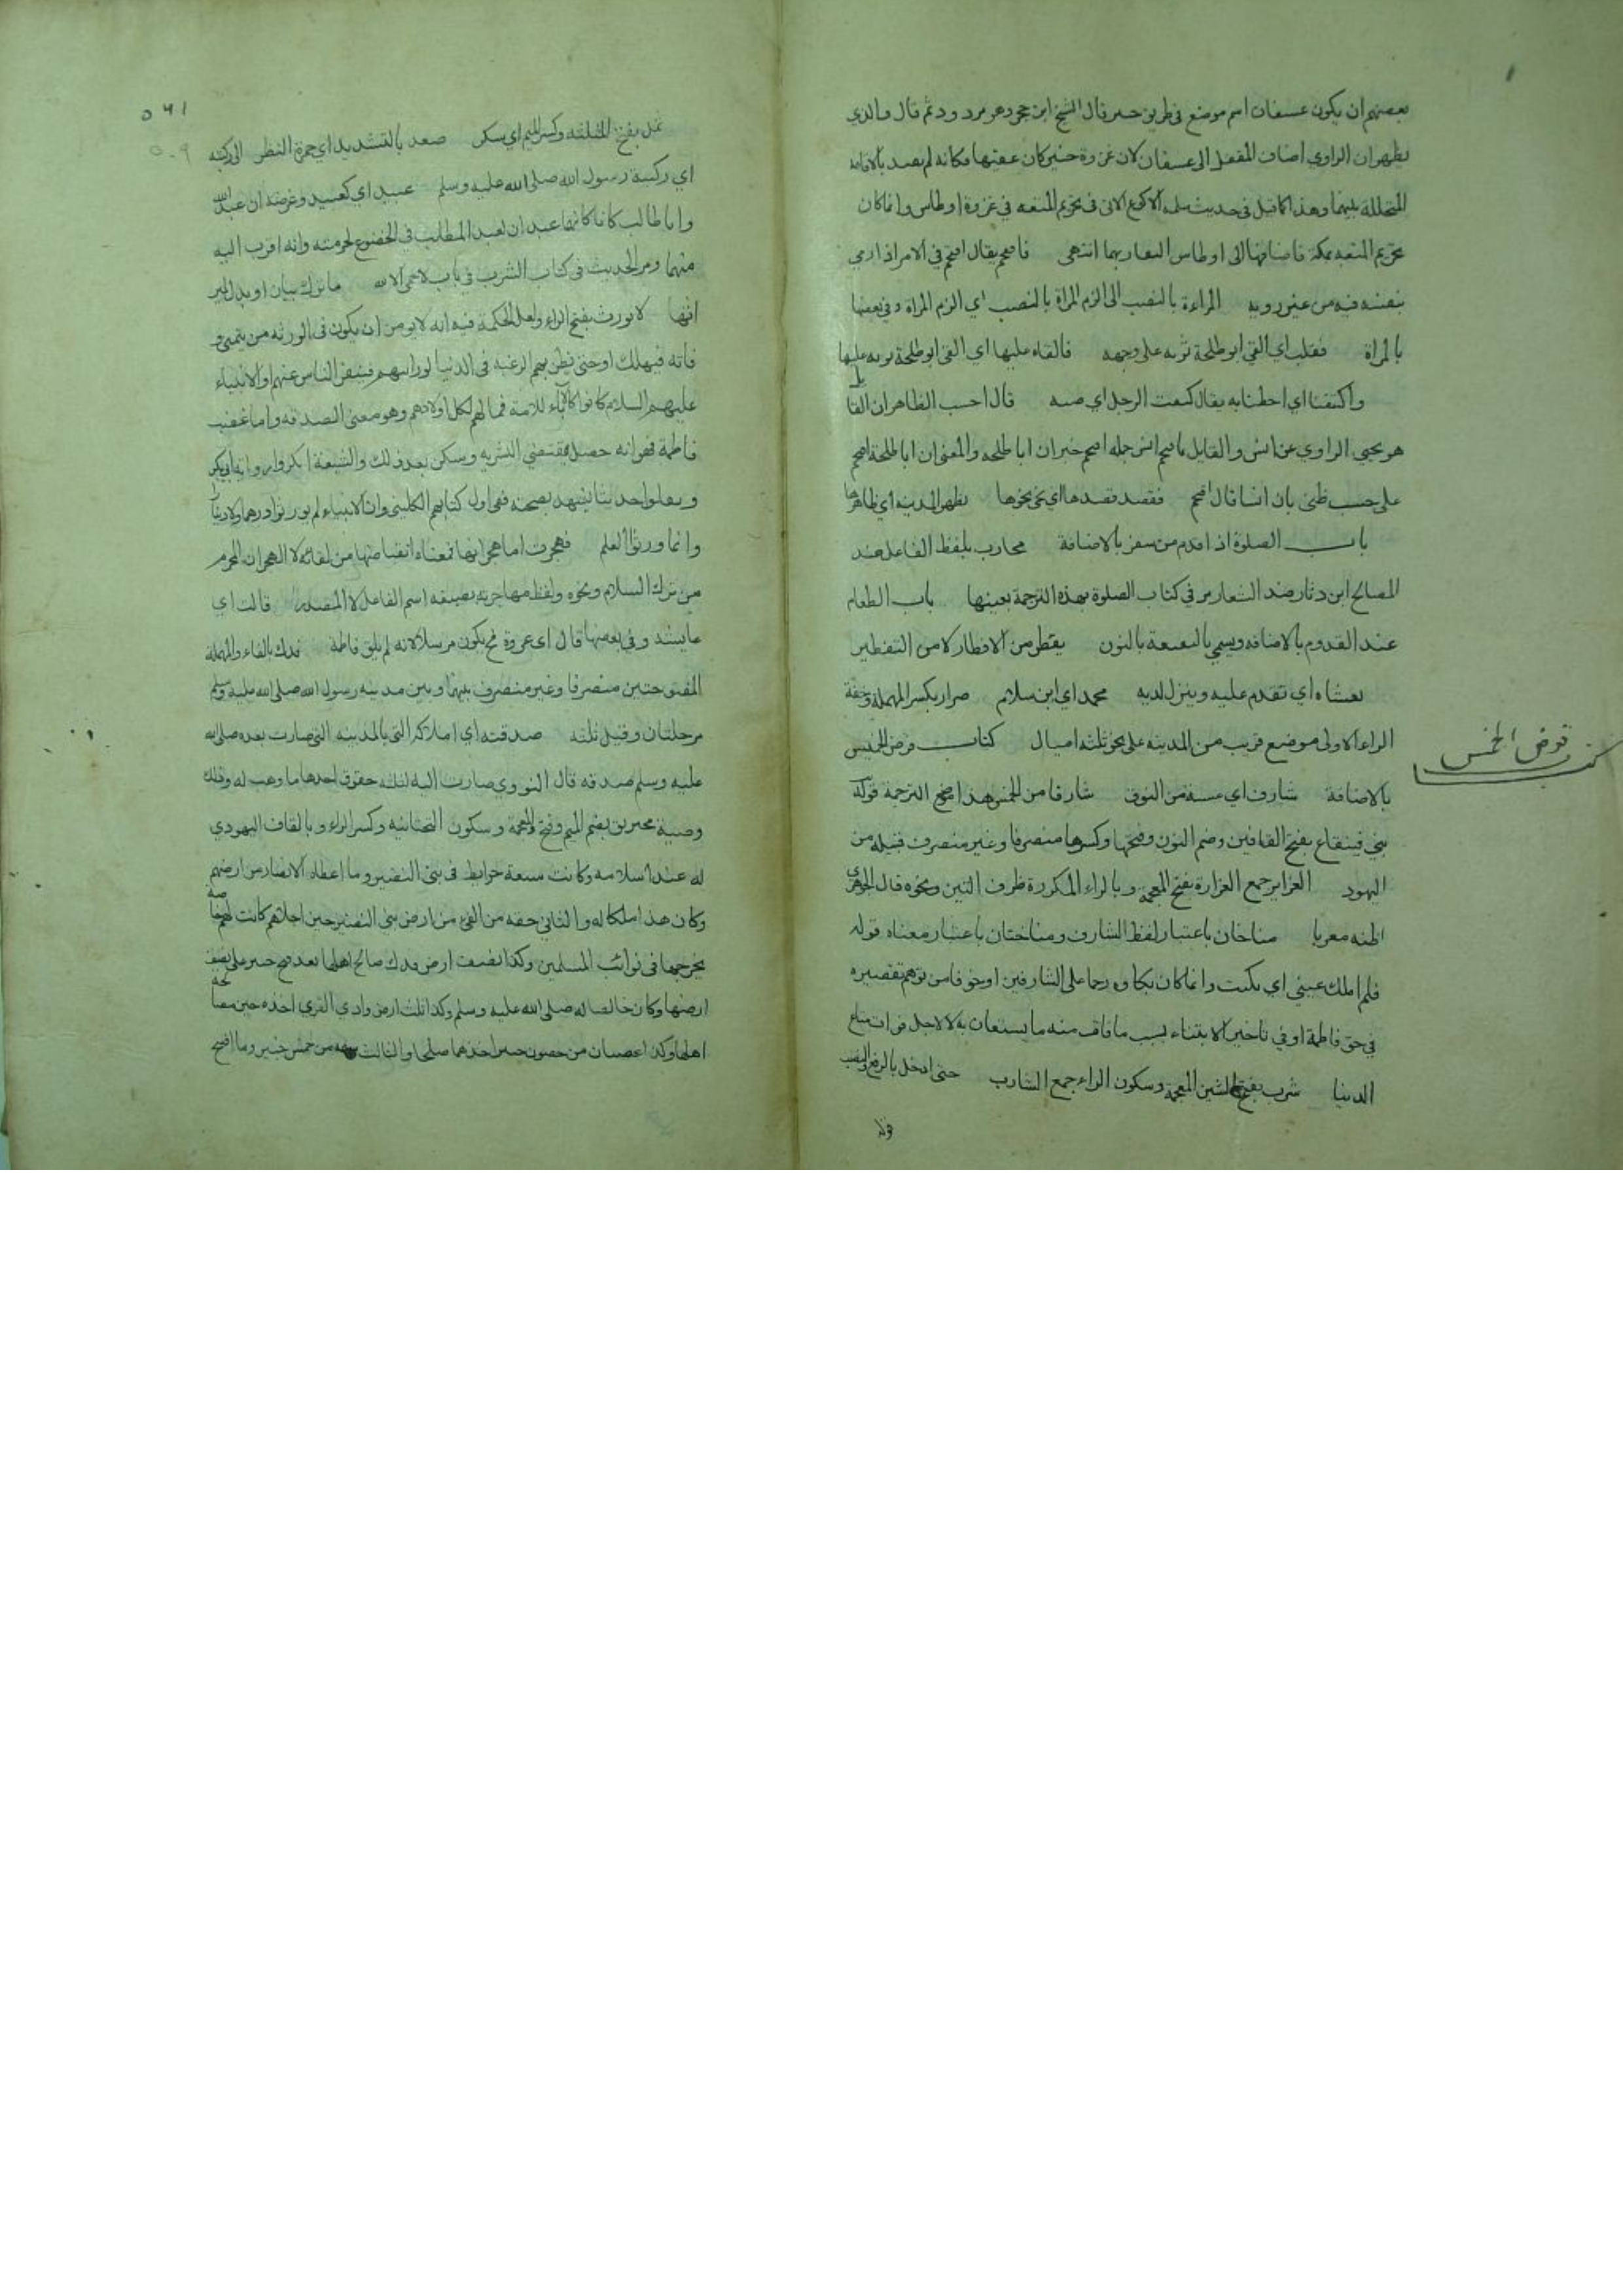 بعضهم ان يكون عسفان اسم موضع في طريق خيبر قال الشيخ ابن حجر وهو مردود ثم قال والذي
يظهر ان الراوي اضاف المقفل الى عسفان لان غزوة حنين كان عقبها وكانه لم يعتد بالاقامة
المتخللة بينهما وهذا كما قيل في حديث سلمه الاكوع الاتي في تحريم المتعه في غزوة اوطاس وانما كان
تحريم المتعه بمكة فاضافها الى اوطاس لتقاربهما انتهى فاقتحم يقال اقتحم في الامر اذا رمى
بنفسه فيه من غير رويه المراءة بالنصب الى الزم المراة بالنصب اي الزم المراة وفي بعضها
بالمراة فقلب اي القى ابو طلحة ثوبه على وجهه فالقاه عليها اي القى ابو طلحة ثوبه عليها
واكتنفنا اي احطنا به يقال كنفت الرجل اي صنه قال احسب الظاهر ان القايل
هو يحيى الراوي عن انس والقايل
على حسب ظني بان انسا قال اقتحم فقصد قصدها اي نحى نحوها بظهر المدينه اي ظاهرها
باب الصلوة اذا قدم من سفر بالاضافة محارب بلفظ الفاعل ضد
المصالح ابن دثار ضد الشعار مر في كتاب الصلوة بهذه الترجمة بعينها باب الطعام
عند القدوم بالاضافه ويسمى بالنقيعة بالنون يفطر من الافطار لا من التفطير
يغشاه اي تقدم عليه وينزل لديه محمد اي ابن سلام صرار بكسر المهملة وخفة
الراء الاولى موضع قريب من المدينه على نحو ثلثه اميال كتاب فرض الخمس
كتاب فرض الخمس
بالاضافة شارف اي مسنة من النوق شارفا من الخمس هذا موضع الترجمة قوله
بني قينقاع بفتح القافين وضم النون وفتحها وكسرها منصرفا وغير منصرف قبيله من
اليهود الغراير جمع الغرارة بفتح المعجمة وبالراء المكررة ظرف التبن ونحوه قال الجوهري
اظنه معربا مناخان باعتبار لفظ الشارف ومناختان باعتبار معناه قوله
فلم املك عيني اي بكيت وانما كان بكاوه رحما على الشارفين او خوفا من توهم تقصيره
في حق فاطمة او في تاخير الابتناء بسبب ما فات منه ما يستعان به لا لاجل فوات متاع
الدنيا شرب بفتح الشين المعجمة وسكون الراء جمع الشارب حتى ادخل بالرفع والنصب
٥٤١
٥٠٩
ثمل بفتح المثلثه وكسر الميم اي سكر صعد بالتشديد اي جر النظر الى ركبته
اي ركبة رسول الله صلى الله عليه وسلم عبيد اي كعبيد وغرضه ان عبد الله
وابا طالب كانا كانهما عبدان لعبد المطلب في الخضوع لحرمته وانه اقرب اليه
منهما ومر الحديث في كتاب الشرب في باب لا حمى الا لله ما ترك بيان او بدل
لا نورث بفتح الراء ولعل الحكمة فيه انه لا يومن ان يكون في الورثه من يتمنى
فاته فيهلك او حتى يظن بهم الرغبه في الدنيا لوراثهم فينفر الناس عنهم او الانبياء
عليهم السلام كانوا كالآباء للامة فمالهم لكل اولادهم وهو معنى الصدقه واما غضب
فاطمة فهو انه حصل بمقتضى البشريه وسكن بعد ذلك والشيعة
ففي اول كتابهم الكليني وان الانبياء لم يورثوا درهما ولا دينارا
وانما ورثوا العلم فهجرت اما هجرانها فمعناه انقباضها من لقائه لا الهجران المحرم
من ترك السلام ونحوه ولفظ مهاجرته بصيغه اسم الفاعل لا المصدر قالت اي
عايشه وفي بعضها قال اي عروة فح يكون مرسلا لانه لم يلق فاطمة فدك بالفاء والمهملة
المفتوحتين منصرفا وغير منصرف بينها وبين مدينه رسول الله صلى الله عليه وسلم
مرحلتان وقيل ثلثه صدقته اي املاكه التي بالمدينه التي صارت بعده صلى الله
عليه وسلم صدقه قال النووي صارت اليه ثلثه حقوق احدها ما وهب له وذلك
وصية مخيريق بضم الميم وفتح المعجمة وسكون التحتانيه وكسر الراء وبالقاف اليهودي
له عند اسلامه وكانت سبعة حوايط في بني النضير وما اعطاه الانصار من ارضهم
وكان هذا ملكا له والثاني حقه من الفيء من ارض بني النضير حين اجلاهم كانت له خاصة
يخرجها في نوائب المسلمين وكذا نصف ارض فدك صالح اهلها بعد فتح خيبر على نصف
ارضها وكان خالصا له صلى الله عليه وسلم وكذا ثلث ارض وادي القرى اخذه حين صالحه
اهلها وكذا حصنان من حصون خيبر اخذهما صلحا والثالث سهمه من خمس خيبر وما افتتح